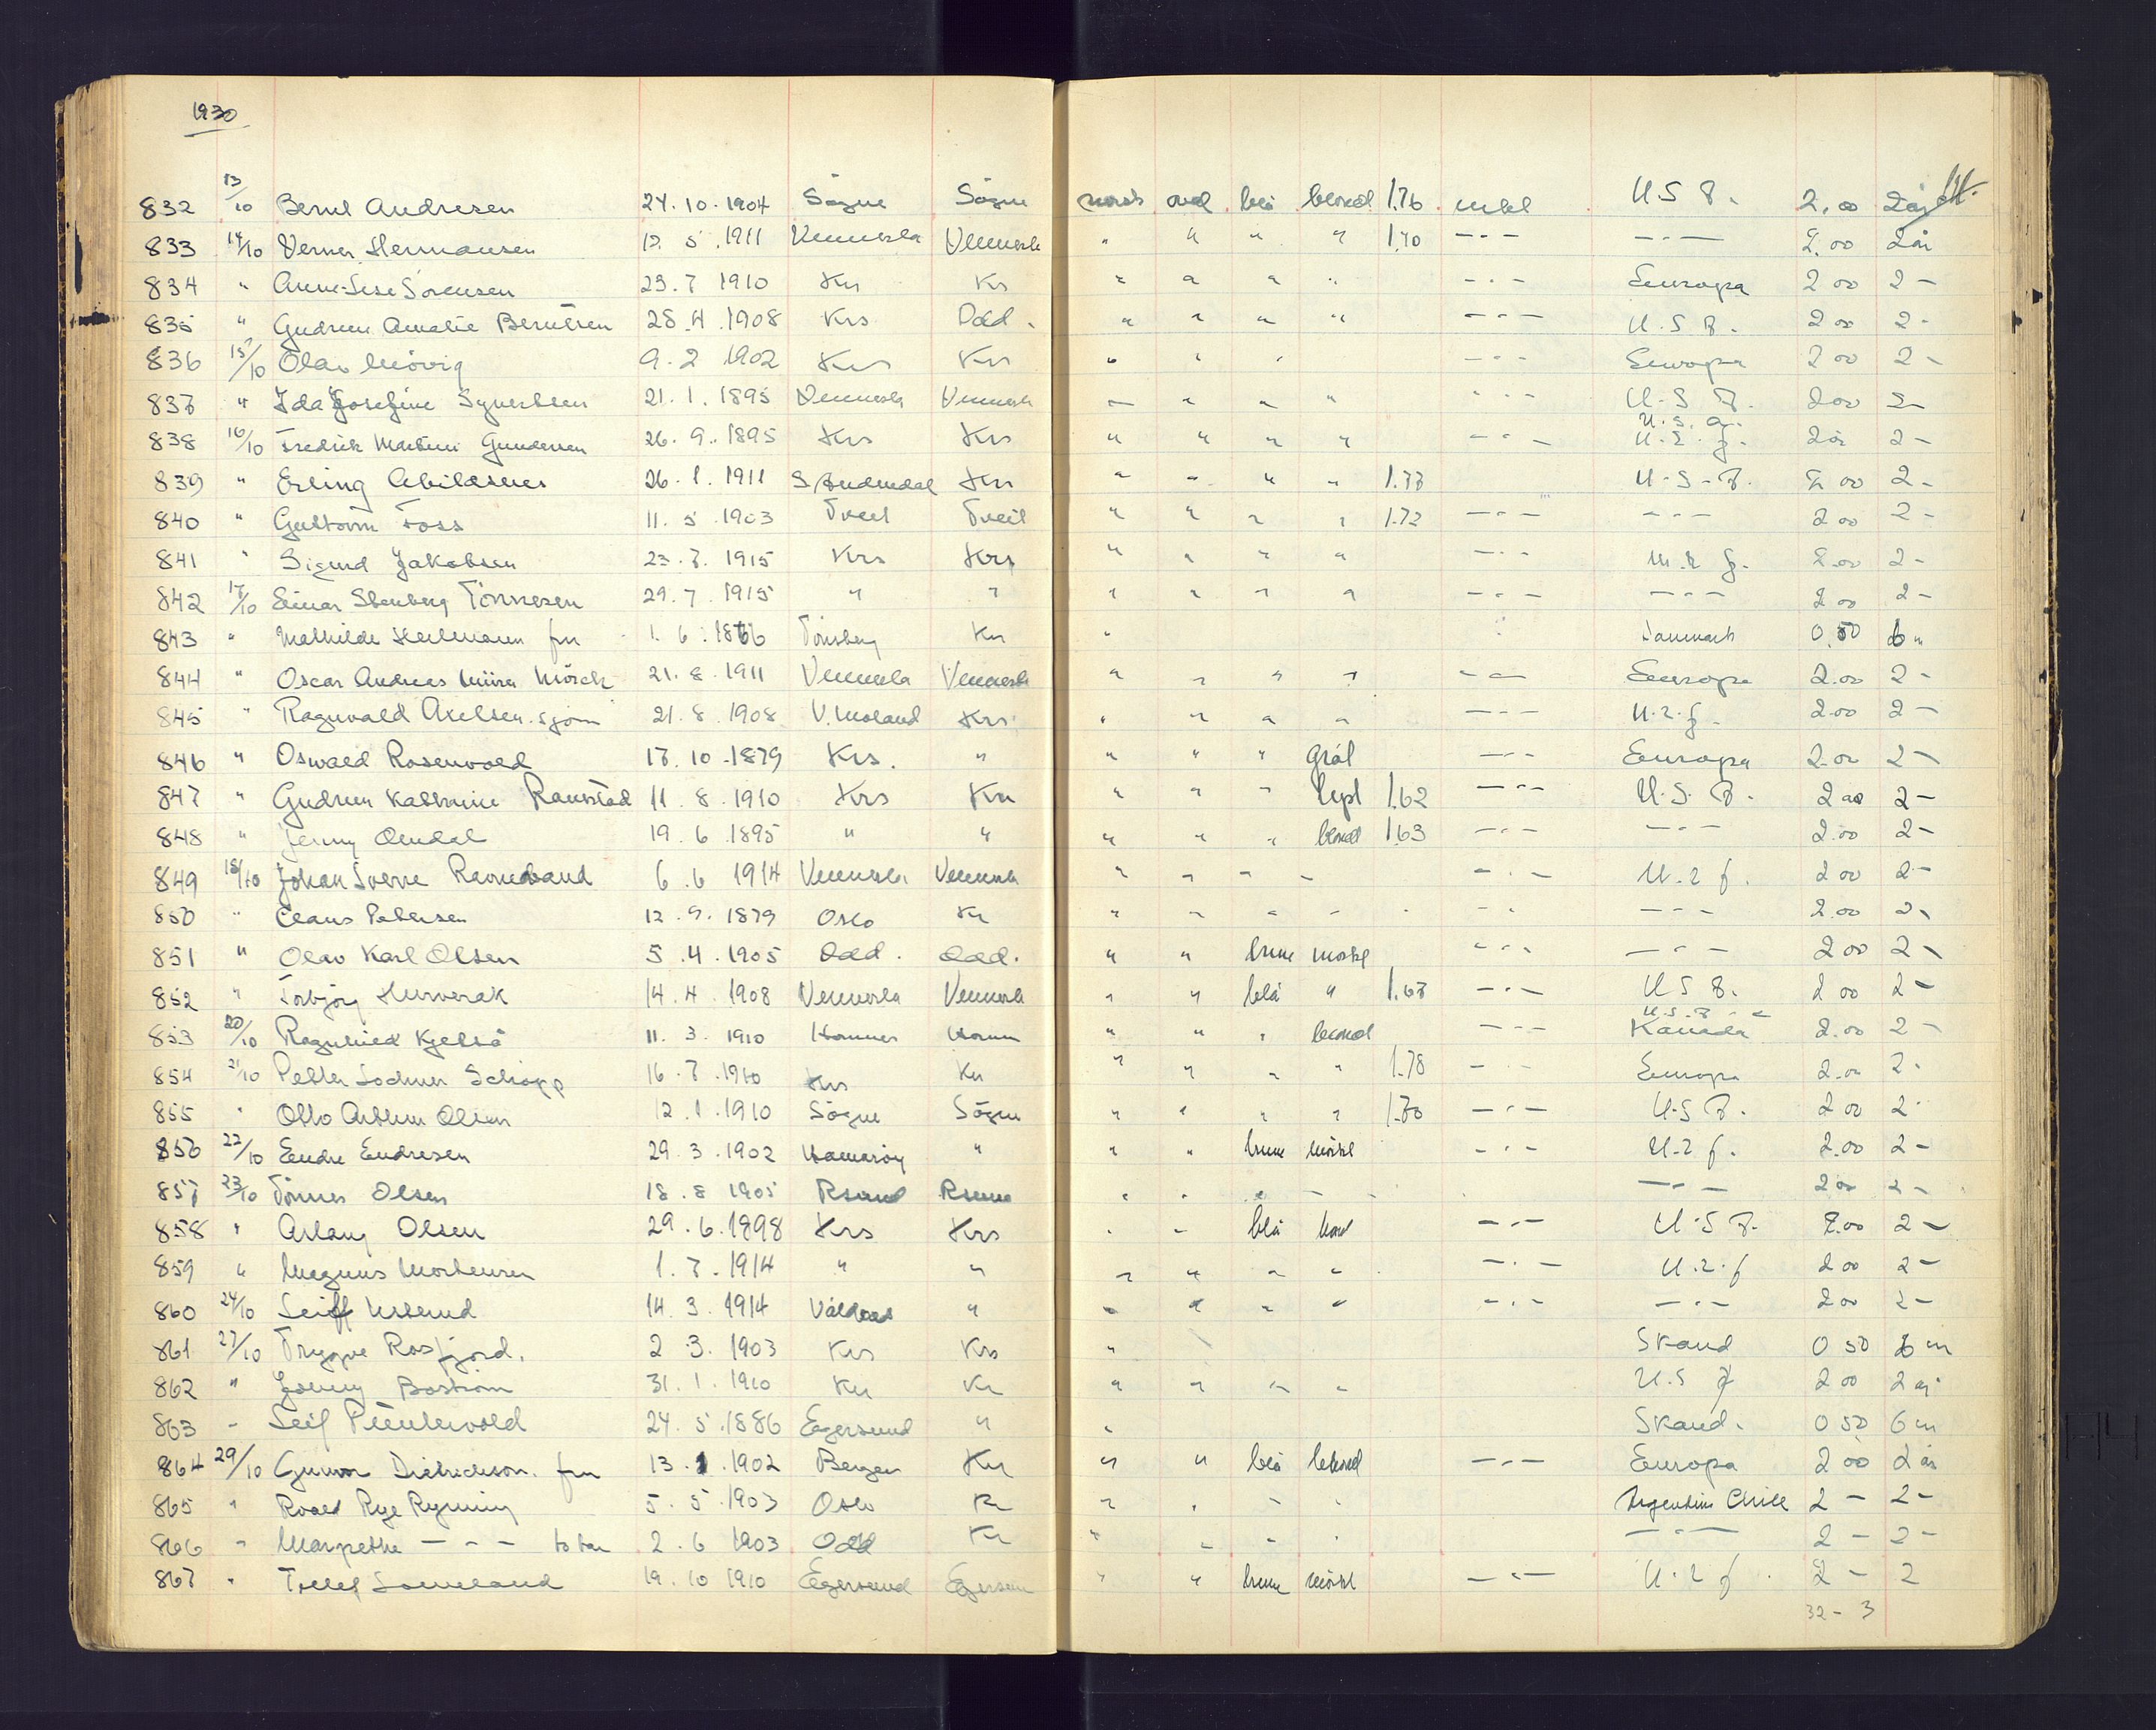 1930
832 13/10 Bernt Andresen 24.10.1904 Sögne Sögne norsk oval blå blond 1.76 U S A. 2.00 2 år
833 14/10 Verner Hermansen 12.5.1911 Vennesla Vennesla " " " " 1.70 -"- -"- 2.00 2 år
834 " Anne-Lise Sörensen 23.7 1910 Krs Krs " " " " -"- Europa 2 00 2 -
835 " Gudrun Amalie Berntsen 28.4.1908 Krs Odd. " " " " -"- U.S.A. 2 00 2 -
836 15/10 Olav Mövig 9.2 1902 Krs Krs " " " -"- Europa 2 00 2 -
837 " Ida Josefine Syvertsen 21.1.1895 Vennesla Vennesla " " " " -"- U.S.A. 2 00 2 -
838 16/10 Fredrik Martini Gundersen 26.9.1895 Krs Krs " " " " -"- U.S.A. U.R.f. 2 år 2 -
839 " Erling Abildsnes 26.1.1911 S. Audnedal Krs " " " " 1.77 U.S.A. 2 00 2 -
840 " Guttorm Foss 11.5.1903 Tveit Tveit " " " " 1.72 -"- -"- 2 00 2 -
841 " Sigurd Jakobsen 23.7.1915 Krs Krs " " " " -"- U.R.f. 2.00 2 -
842 17/10 Einar Stenberg Tönnesen 29.7.1915 " " " " " " -"- -"- 2 00 2 -
843 " Mathilde Heilmann fru 1.6.1866 Tönsberg Kr " Danmark 0.50 6 m
844 " Oscar Andreas Mörck 21.8.1911 Vennesla Vennesla " " " " -"- Europa 2.00 2 -
845 " Ragnvald Axelsen. sjöm 21.8.1908 V. Moland Krs " " " " -"- U.R.f. 2.00 2 -
846 " Oswald Rosenvold 17.10.1879 Krs. " " " " grål -"- Europa 2.00 2 -
847 " Gudrun Kathrine Raustad 11.8.1910 Krs Kr " " " 1.62 -"- U.S.A. 2 00 2 -
848 " Jenny Omdal 19.6.1895 " " " " " blond 1.63 -"- -"- 2.00 2 -
849 18/10 Johan Sverre Ravnebrand 6.6 1914 Vennesla Vennesla " " " " -"- U.R.f. 2 00 2 -
850 " Claus Petersen 12.9.1879 Oslo Kr " " " " -"- -"- 2.00 2 -
851 " Olav Karl Olsen 5.4.1905 Odd. Odd. " " brune mörkt -"- -"- 2 00 2 -
852 " Torbjörg Hunsverak 14.4.1908 Vennesla Vennesla " " blå " 1.67 -"- U S A. 2 00 2 -
853 20/10 Ragnhild Kjelså 11.3.1910 " " " blond -"- U.S.A. Kanada 2.00 2 -
854 21/10 Petter Lochner Schöpp 16.7.1910 Krs Kr " " " " 1.78 -"- Europa 2.00 2 -
855 " Otto Arthur Olsen 12.1.1910 Sögne Sögne " " " " 1.70 -"- U.S.A. 2 00 2 -
856 22/10 Endre Endresen 29.3.1902 Hamaröy " " " brune mörkt -"- U.R.f. 2.00 2 -
857 23/10 Tönnes Olsen 18.8 1905 Rsund Rsund " " " " -"- 2 00 2 -
858 " Aslaug Olsen 29.6.1898 Krs Krs " " blå blond -"- U.S.A. 2.00 2 -
859 " Magnus Mortensen 1.7.1914 " " " " " " -"- U.R.f 2 00 2 -
860 24/10 Leiff Usterud 14.3.1914 " " " " " -"- -"- 2 00 2 -
861 27/10 Trygve Rosfjord. 2.3.1903 Krs Krs " Skand 0 50 6 m
862 " Jonny Boström 31.1.1910 Kr Kr " " " " U.S.A 2 00 2 år
863 " Leif 24.5.1886 Egersund " " Skand. 0 50 6 m
864 29/10 Gunvor Didrichson. fru 13.1.1902 Bergen Kr " " blå blond -"- Europa 2 00 2 år
865 " Roald Rye Ryning 5.5.1903 Oslo Kr " " " " Argentina Chile 2 - 2 -
866 " Margrethe -"- 2.6 1903 Odd Kr " " " " -"- 2 - 2 -
867 " Tellef Lomeland 19.10 1910 Egersund Egersun " " brune mörkt -"- U.R.f. 2 - 2
32 - 3